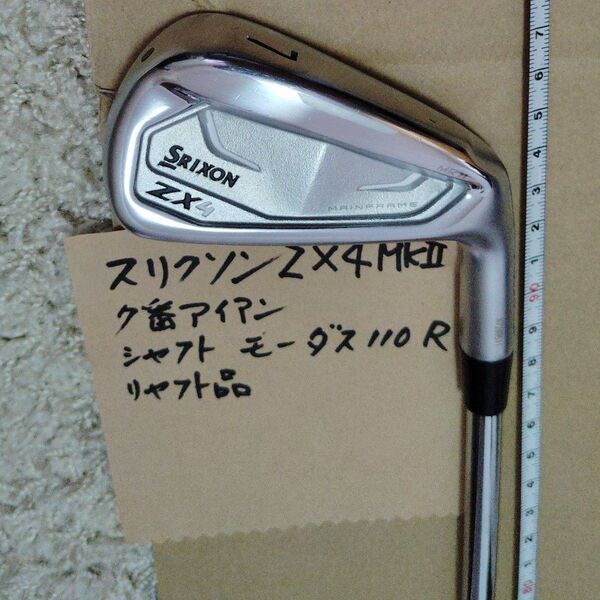 7
SRIXON
ZX4
MAINFRAME
スリクソンZX4MKII
7番アイアン
シャフト モーダス110R
リシャフト品
7
6
5
4
3
2
1
90
9
8
7
6
5
4
3
2
1
80